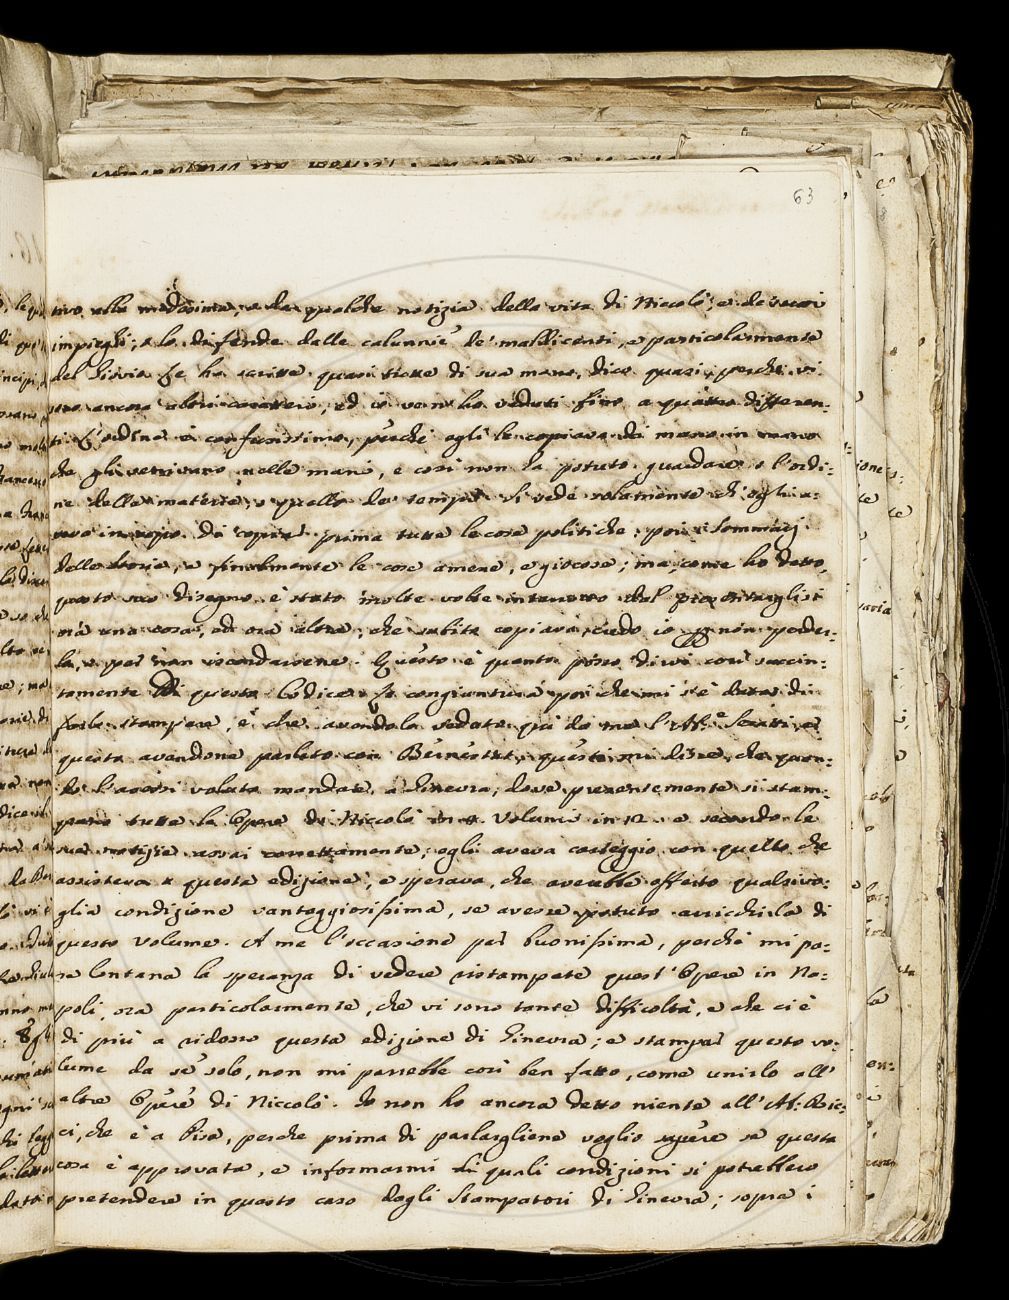 63
tivo alla medesima, e da qualche notizia della vita di Niccolò, e de' suoi
impieghi; e lo difende dalle calunnie de' maldicenti, e particolarmente
del Giovio. Le ha scritte quasi tutte di sua mano, dico quasi, perchè vi
sono ancora altri caratteri, ed io ve n'ho veduti fino a quattro differen-
ti. L'ordine è confusissimo, perchè egli le copiava di mano in mano
che gli venivano nelle mani, e così non ha potuto guardare o l'ordi-
ne delle materie, o quello de' tempi. Si vede solamente ch'egli a-
veva in di copiar prima tutte le cose politiche, poi i Sommarj
della Storia, e finalmente le cose amene, e giocose; ma, come ho detto,
questo suo disegno è stato molte volte interrotto dal
ora una cosa, ed ora altra, che subito copiava, credo io per non perder-
la, e per non iscordarsene. Questo è quanto posso dirvi così succin-
tamente di questo Codice. La congiuntura poi che mi s'è data di
farlo stampare, è che avendolo veduto quì da me l'Ab.e e
questo avendone parlato con questi mi disse, che quan-
do l'avessi voluto mandare a Ginevra, dove presentemente si stam-
pano tutte le Opere di Niccolò in Volumi in 12. e secondo le
sue notizie assai correttamente, egli aveva carteggio con quello che
assisteva a questa edizione, e sperava, che averebbe offerto qualsivo-
glia condizione vantaggiosissima, se avesse potuto arricchirla di
questo Volume. A me l'occasione par buonissima, perchè mi pa-
re lontana la speranza di vedere ristampate quest'Opere in Na-
poli, ora particolarmente, che vi sono tante difficoltà, e che ci è
di più a ridosso questa edizione di Ginevra; e stampar questo vo-
lume da sè solo, non mi parrebbe così ben fatto, come unirlo all'
altre Opere di Niccolò. Io non ho ancora detto niente all'Ab: Ric-
ci, che è a Pisa, perchè prima di parlargliene voglio sapere se questa
cosa è approvata, e informarmi di quali condizioni si potrebbero
pretendere in questo caso dagli Stampatori di Ginevra; sopra i